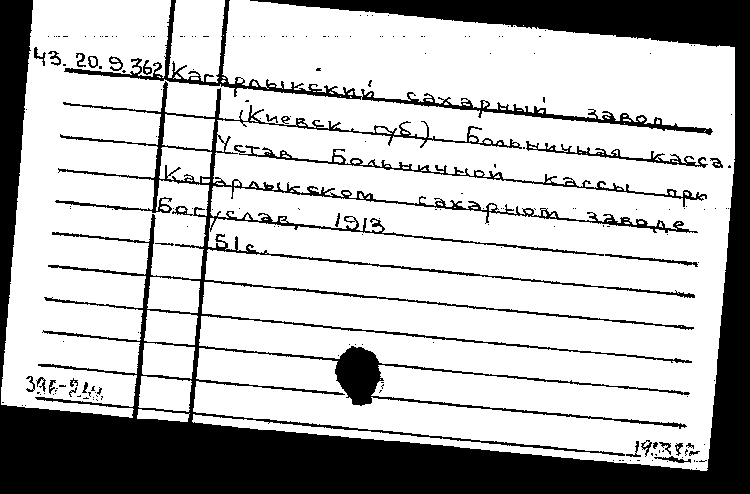 43. 20. 9. 362 Кагарлыкский сахарный завод.
(Киевск. губ.). Больничная касса.
Устав Больничной кассы при
Кагарлыкском сахарном заводе
Богуслав, 1913
51с.